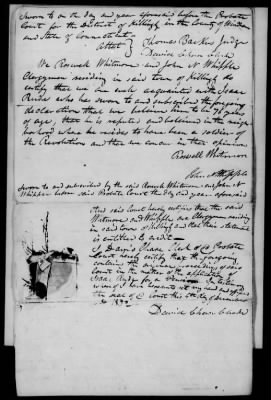 Sworn to on the day and year aforesaid before the Probate
Court for the district of Killingly in the County of Windham
and State of Connecticut
Attest Thomas Backus Judge
David Chase Clerk
We Roswell Whitmore and John N Whipple
Clergymen residing in said town of Killingly do
certify that we are well acquainted with Isaac
who has sworn to and subscribed the foregoing
declaration that we believe him to be years
of age, that he is reputed and believed in the
hood where he resides to have been a soldier of
the Revolution and that we concur in that opinion
Roswell Whitmore
John N Whipple
Sworn to and subscribed by the said Roswell Whitmore and John N
Whipple before said Probate Court the day and year aforesaid
And said Court hereby certifies that the said
Whitmore and Whipple are Clergymen residing
in said town of Killingly and that their statement
is entitled to credit
I David Chase Clerk of Probate
Court hereby certify that the foregoing
contains the original proceedings of said
Court in the matter of the application of
Isaac for a Pension In testimony
whereof I have hereunto set my hand and
the seal of Court this day of
1832
David Chase Clerk